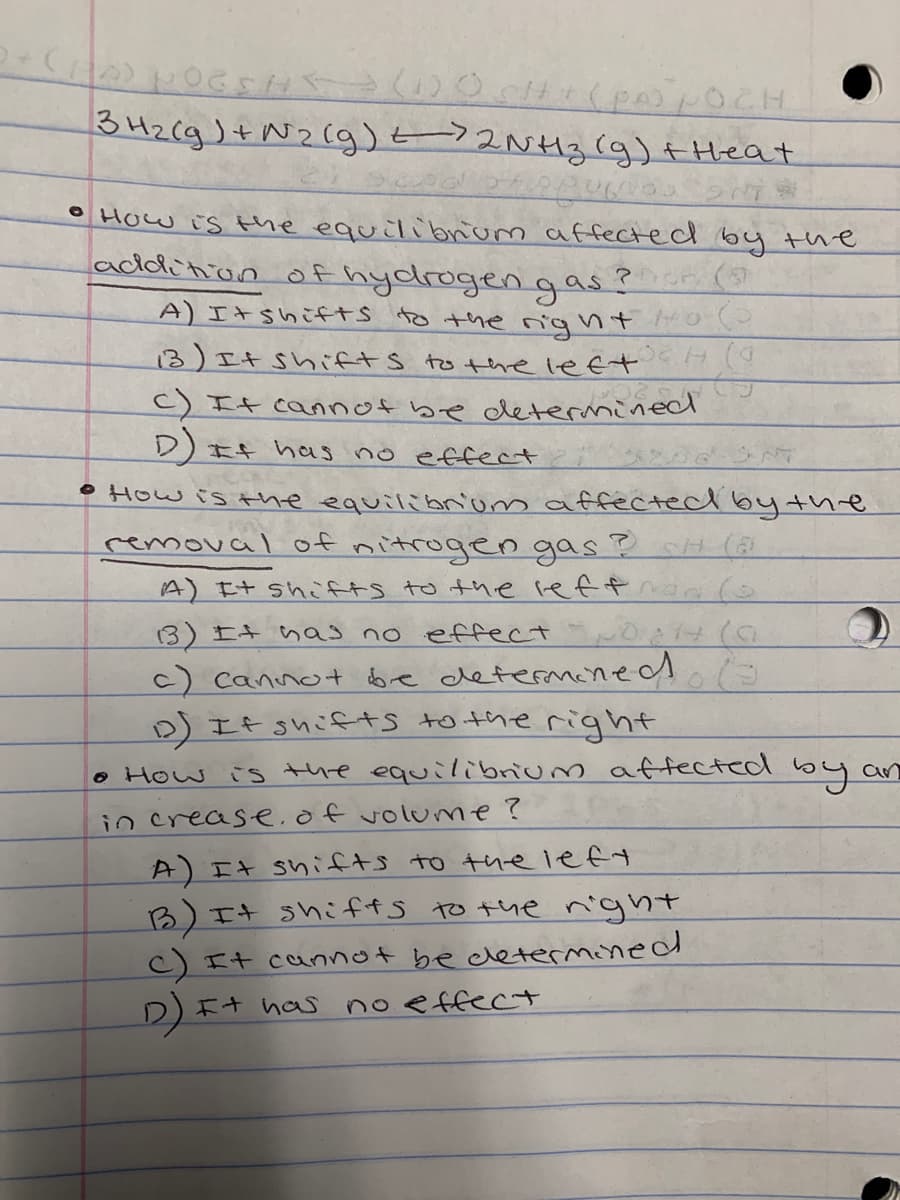 3H2(g) + N2(g) ⟷ 2NH3(g) + Heat
• How is the equilibrium affected by the
addition of hydrogen gas?
A) It shifts to the right
B) It shifts to the left
C) It cannot be determined
D) It has no effect
• How is the equilibrium affected by the
removal of nitrogen gas?
A) It shifts to the left
B) It has no effect
C) cannot be determined
D) It shifts to the right
• How is the equilibrium affected by an
increase. of volume?
A) It shifts to the left
B) It shifts to the right
C) It cannot be determined
D) It has no effect